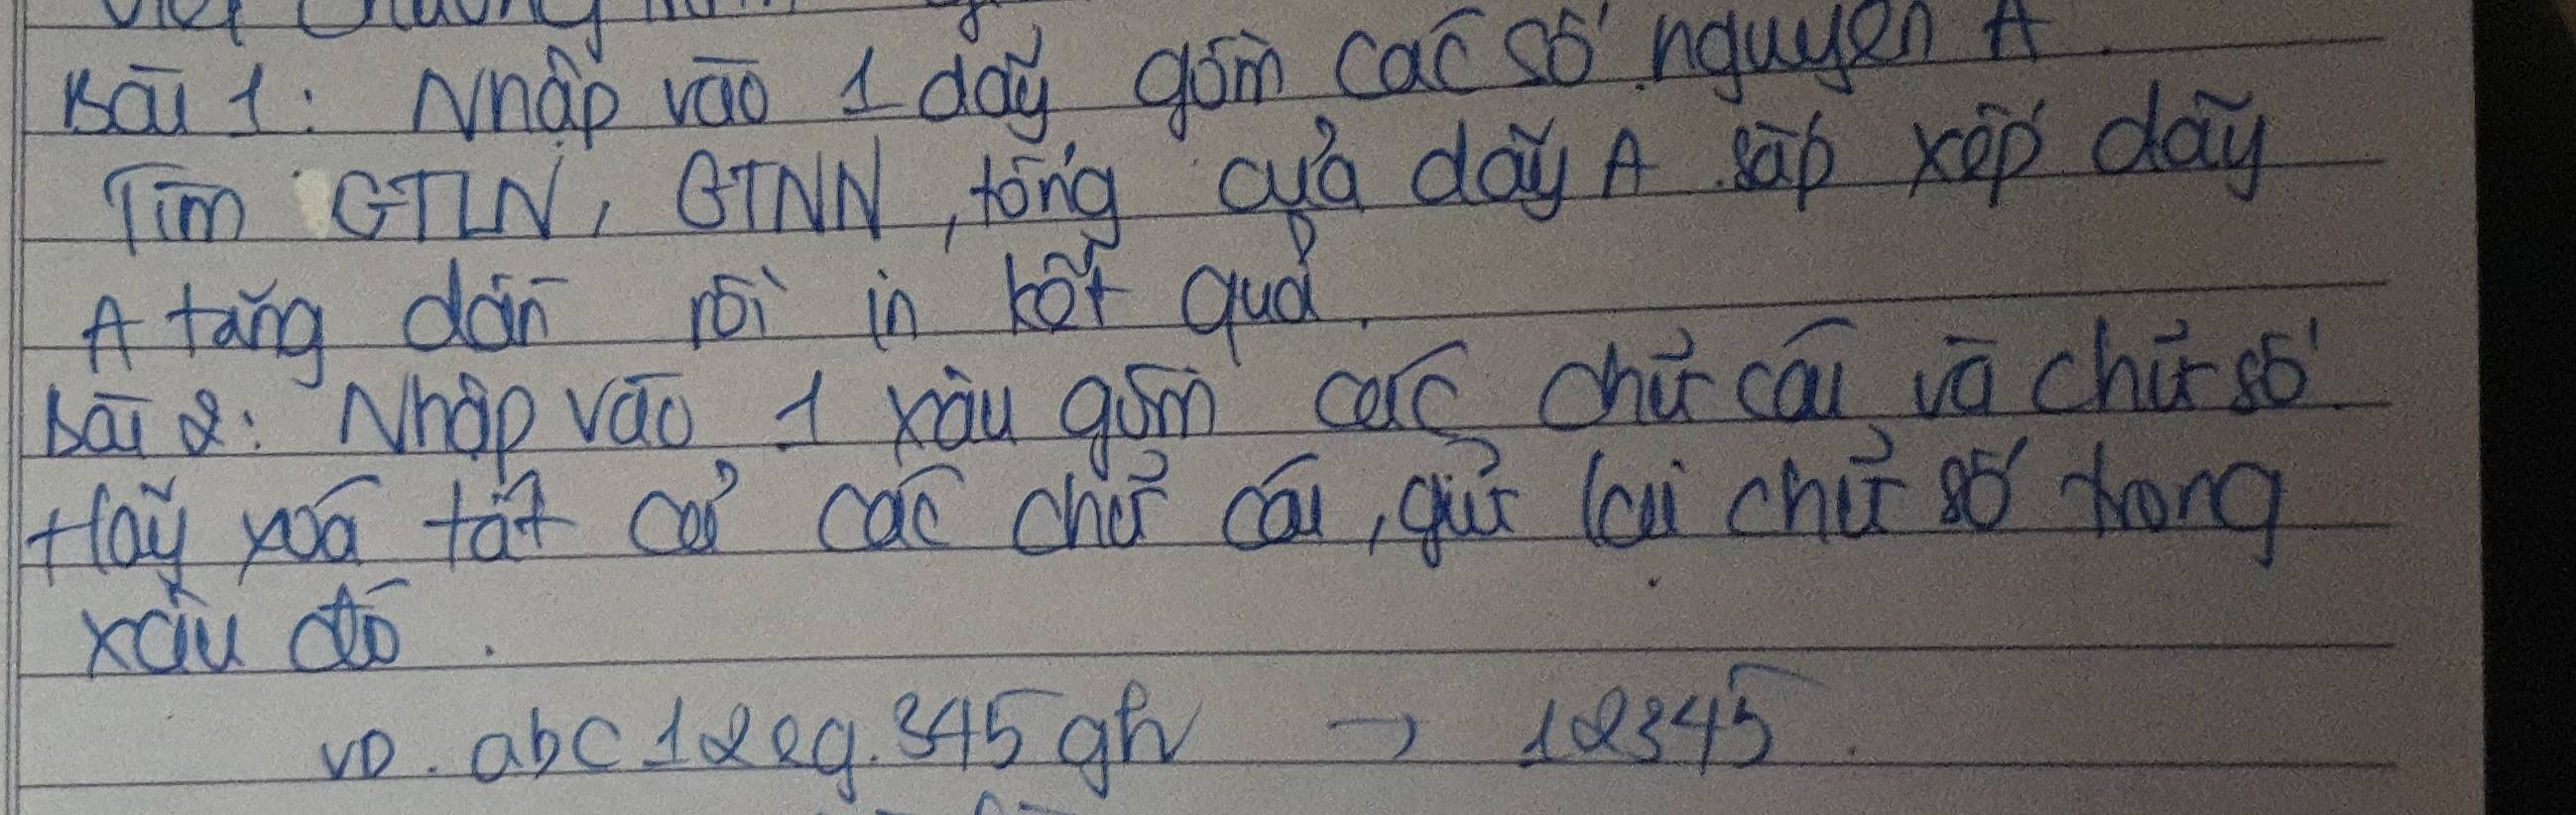 Viết chương
Bài 1: Nhập vào 1 dãy gồm các số nguyên A
Tìm GTLN, GTNN, tổng của dãy A sắp xếp dãy
A tăng dần rồi in kết quả.
Bài 2: Nhập vào 1 xâu gồm các chữ cái và chữ số
Hãy xoá tất cả các chữ cái, giữ lại chữ số trong
xâu đó.
VD. abc12eg.345gh → 12345.